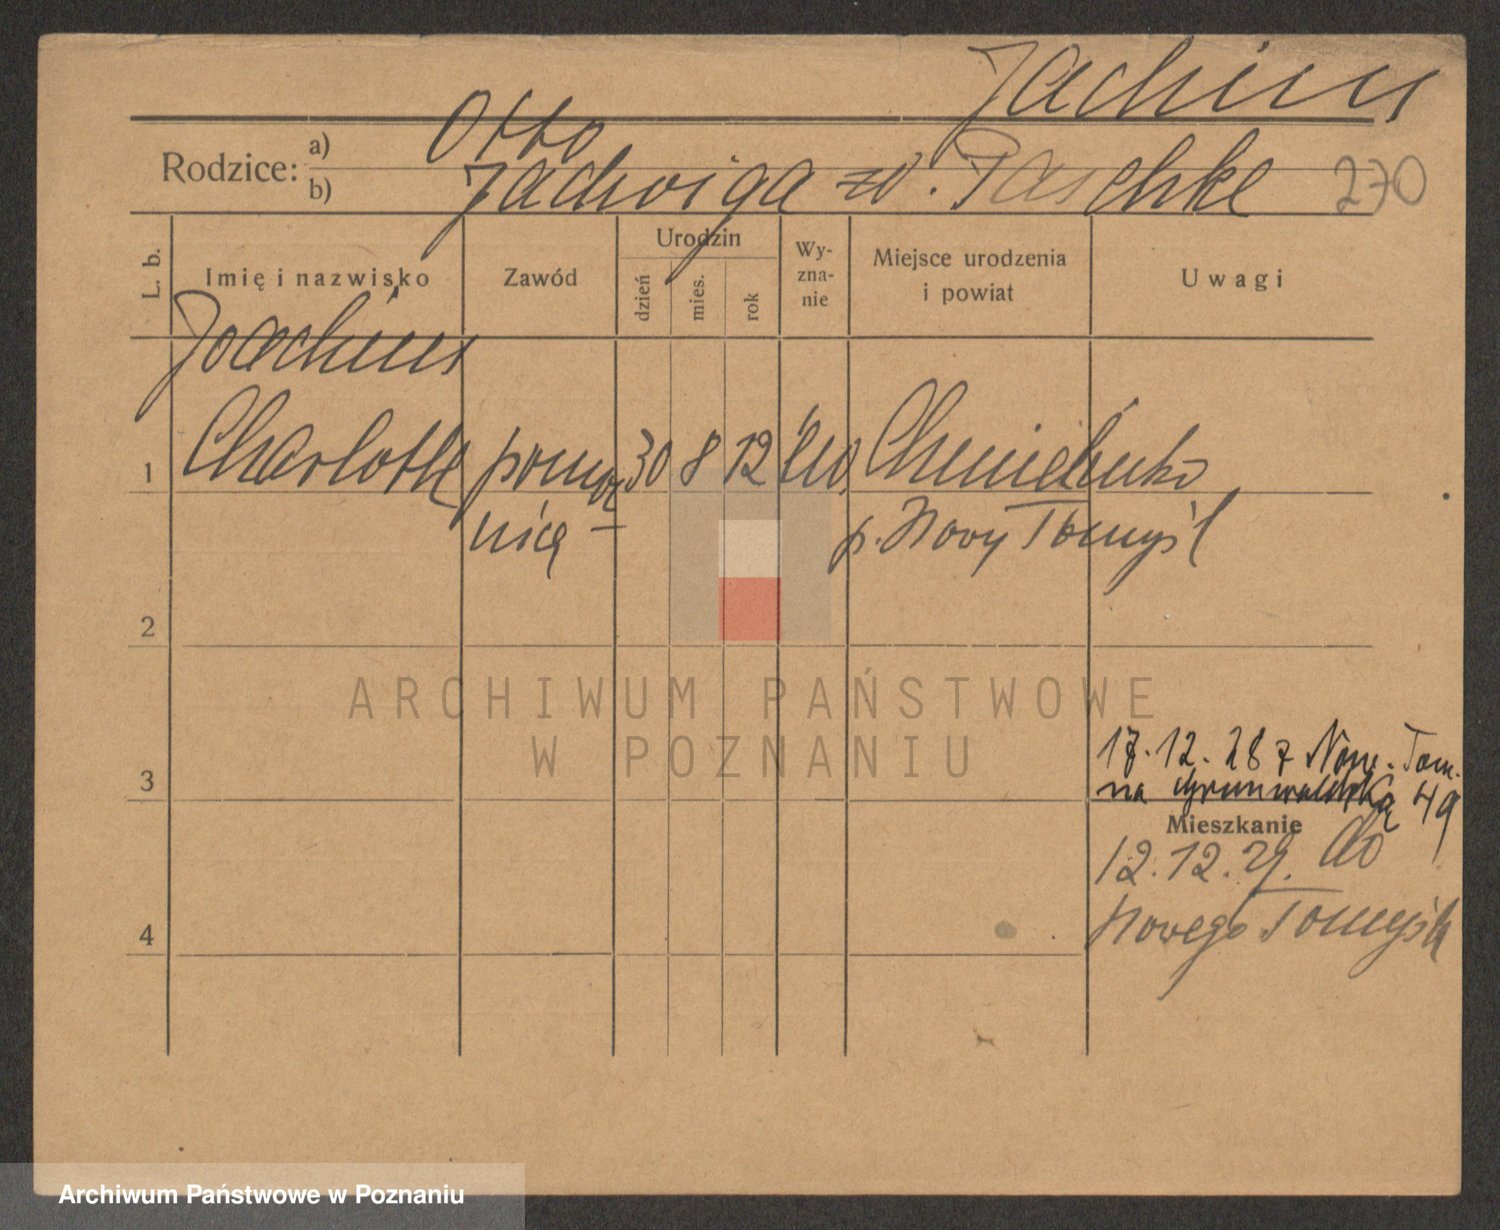 Jachim
Rodzice: a) Otto
b) Jadwiga zd. Paschke 270
L. b. Imię i nazwisko Zawód Urodzin dzień mies. rok Wy-zna-nie Miejsce urodzenia i powiat Uwagi
Joachim
1 Charlotte pomoc 30 8 12 Chmielinko
nica p. Nowy Tomyśl
2
ARCHIWUM PAŃSTWOWE
W POZNANIU
17.12.28 z Now. Tom.
3 na Grunwaldzką 49
Mieszkanie
12.12.29. do
4 Nowego Tomyśla
Archiwum Państwowe w Poznaniu